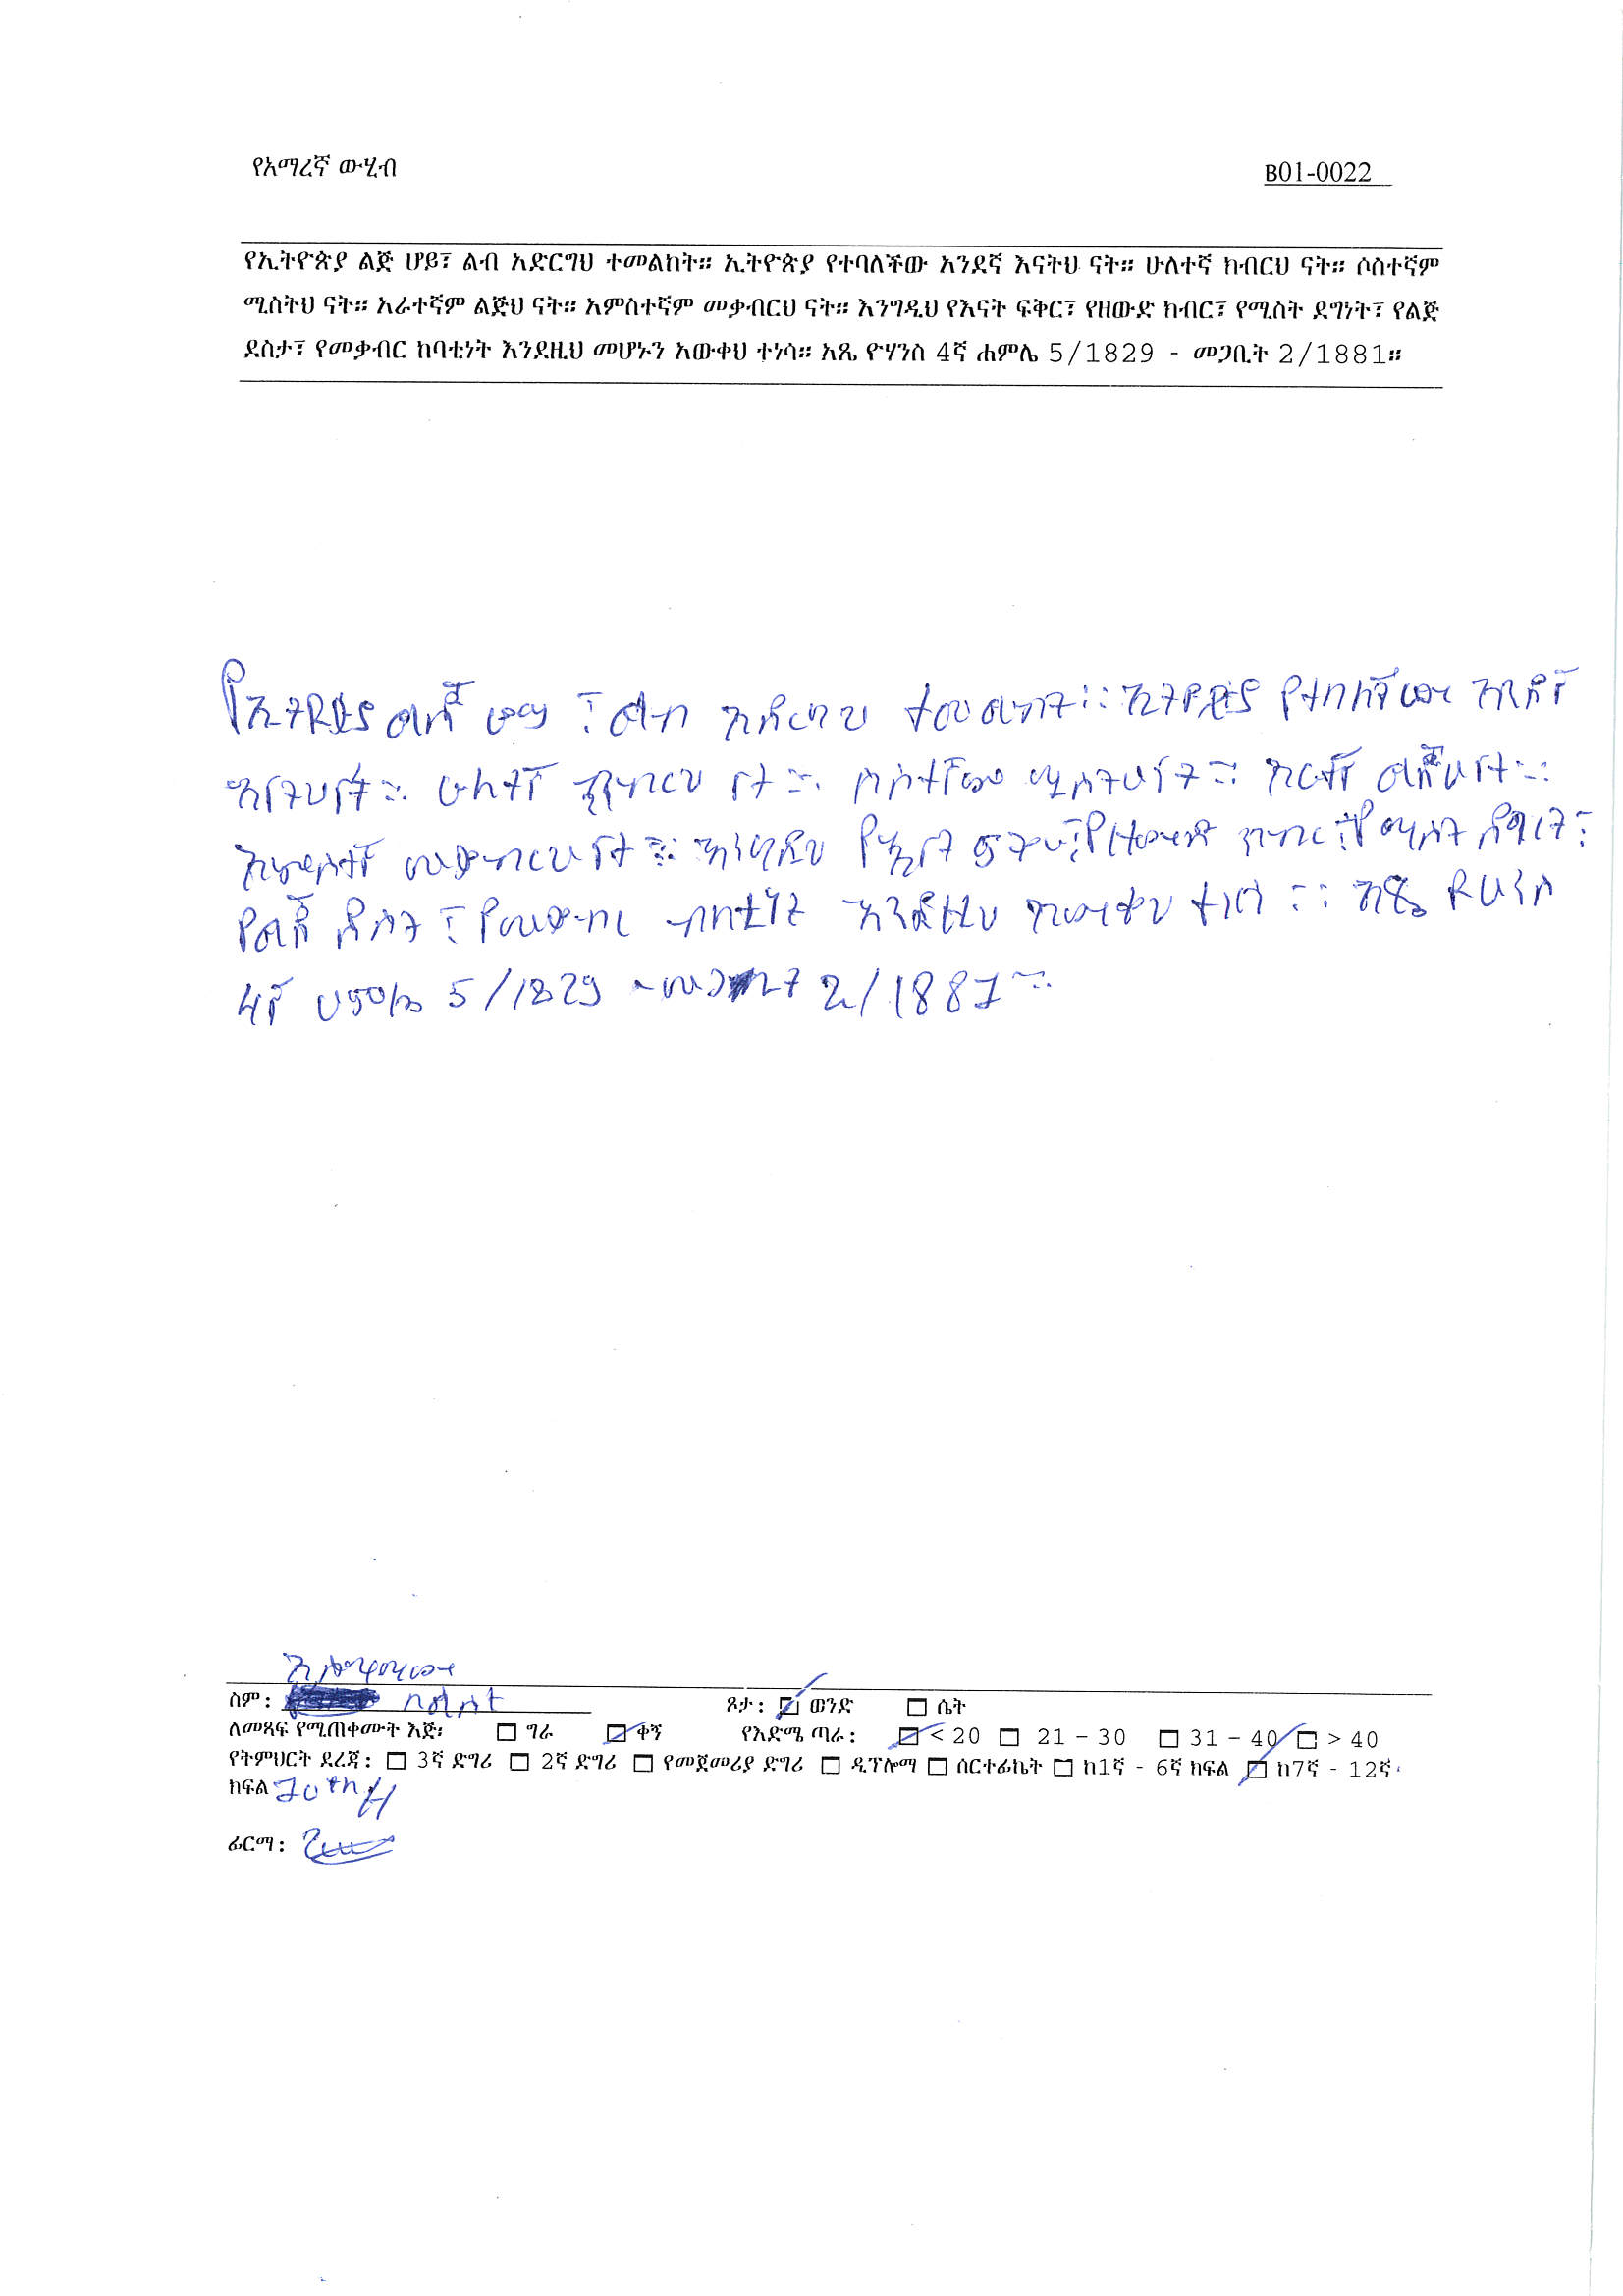 የአማረኛ ውሂብ
B01-0022
የኢትዮጵያ ልጅ ሆይ፣ ልብ አድርግህ ተመልከት። ኢትዮጵያ የተባለችው አንደኛ እናትህ ናት። ሁለተኛ ክብርህ ናት። ሶስተኛም
ሚስትህ ናት። አራተኛም ልጅህ ናት። አምስተኛም መቃብርህ ናት። እንግዲህ የእናት ፍቅር፣ የዘውድ ክብር፣ የሚስት ደግነት፣ የልጅ
ደስታ፣ የመቃብር ከባቲነት እንደዚህ መሆኑን አውቀህ ተነሳ። አጼ ዮሃንስ 4ኛ ሐምሌ 5/1829 - መጋቢት 2/1881።
የኢትዮጵያ ልጅ ሆይ ፣ ልብ አድርግህ ተመልከት ። ኢትዮጵያ የተባለችው አንደኛ
እናትህ ናት ። ሁለተኛ ክብርህ ናት ። ሶስተኛም ሚስትህ ናት ። አራተኛ ልጅህ ናት ።
አምስተኛ መቃብርህ ናት ። እንግዲህ የእናት ፍቅር ፣ የዘውድ ክብር ፣ የሚስት ደግነት ፣
የልጅ ደስታ ፣ የመቃብር ከባቲነት እንደዚህ አውቀህ ተነሳ ። አጼ ዮሃንስ
4ኛ ሀምሌ 5/1829 - መጋቢት 2/1881 ።
ስም:
ጾታ: ወንድ ሴት
ለመጻፍ የሚጠቀሙት እጅ: ግራ ቀኝ የእድሜ ጣራ: < 20 21 – 30 31 – 40 > 40
የትምህርት ደረጃ: 3ኛ ድግሪ 2ኛ ድግሪ የመጀመሪያ ድግሪ ዲፕሎማ ሰርተፊኬት ከ1ኛ - 6ኛ ክፍል ከ7ኛ - 12ኛ
ክፍል 10th
ፊርማ: